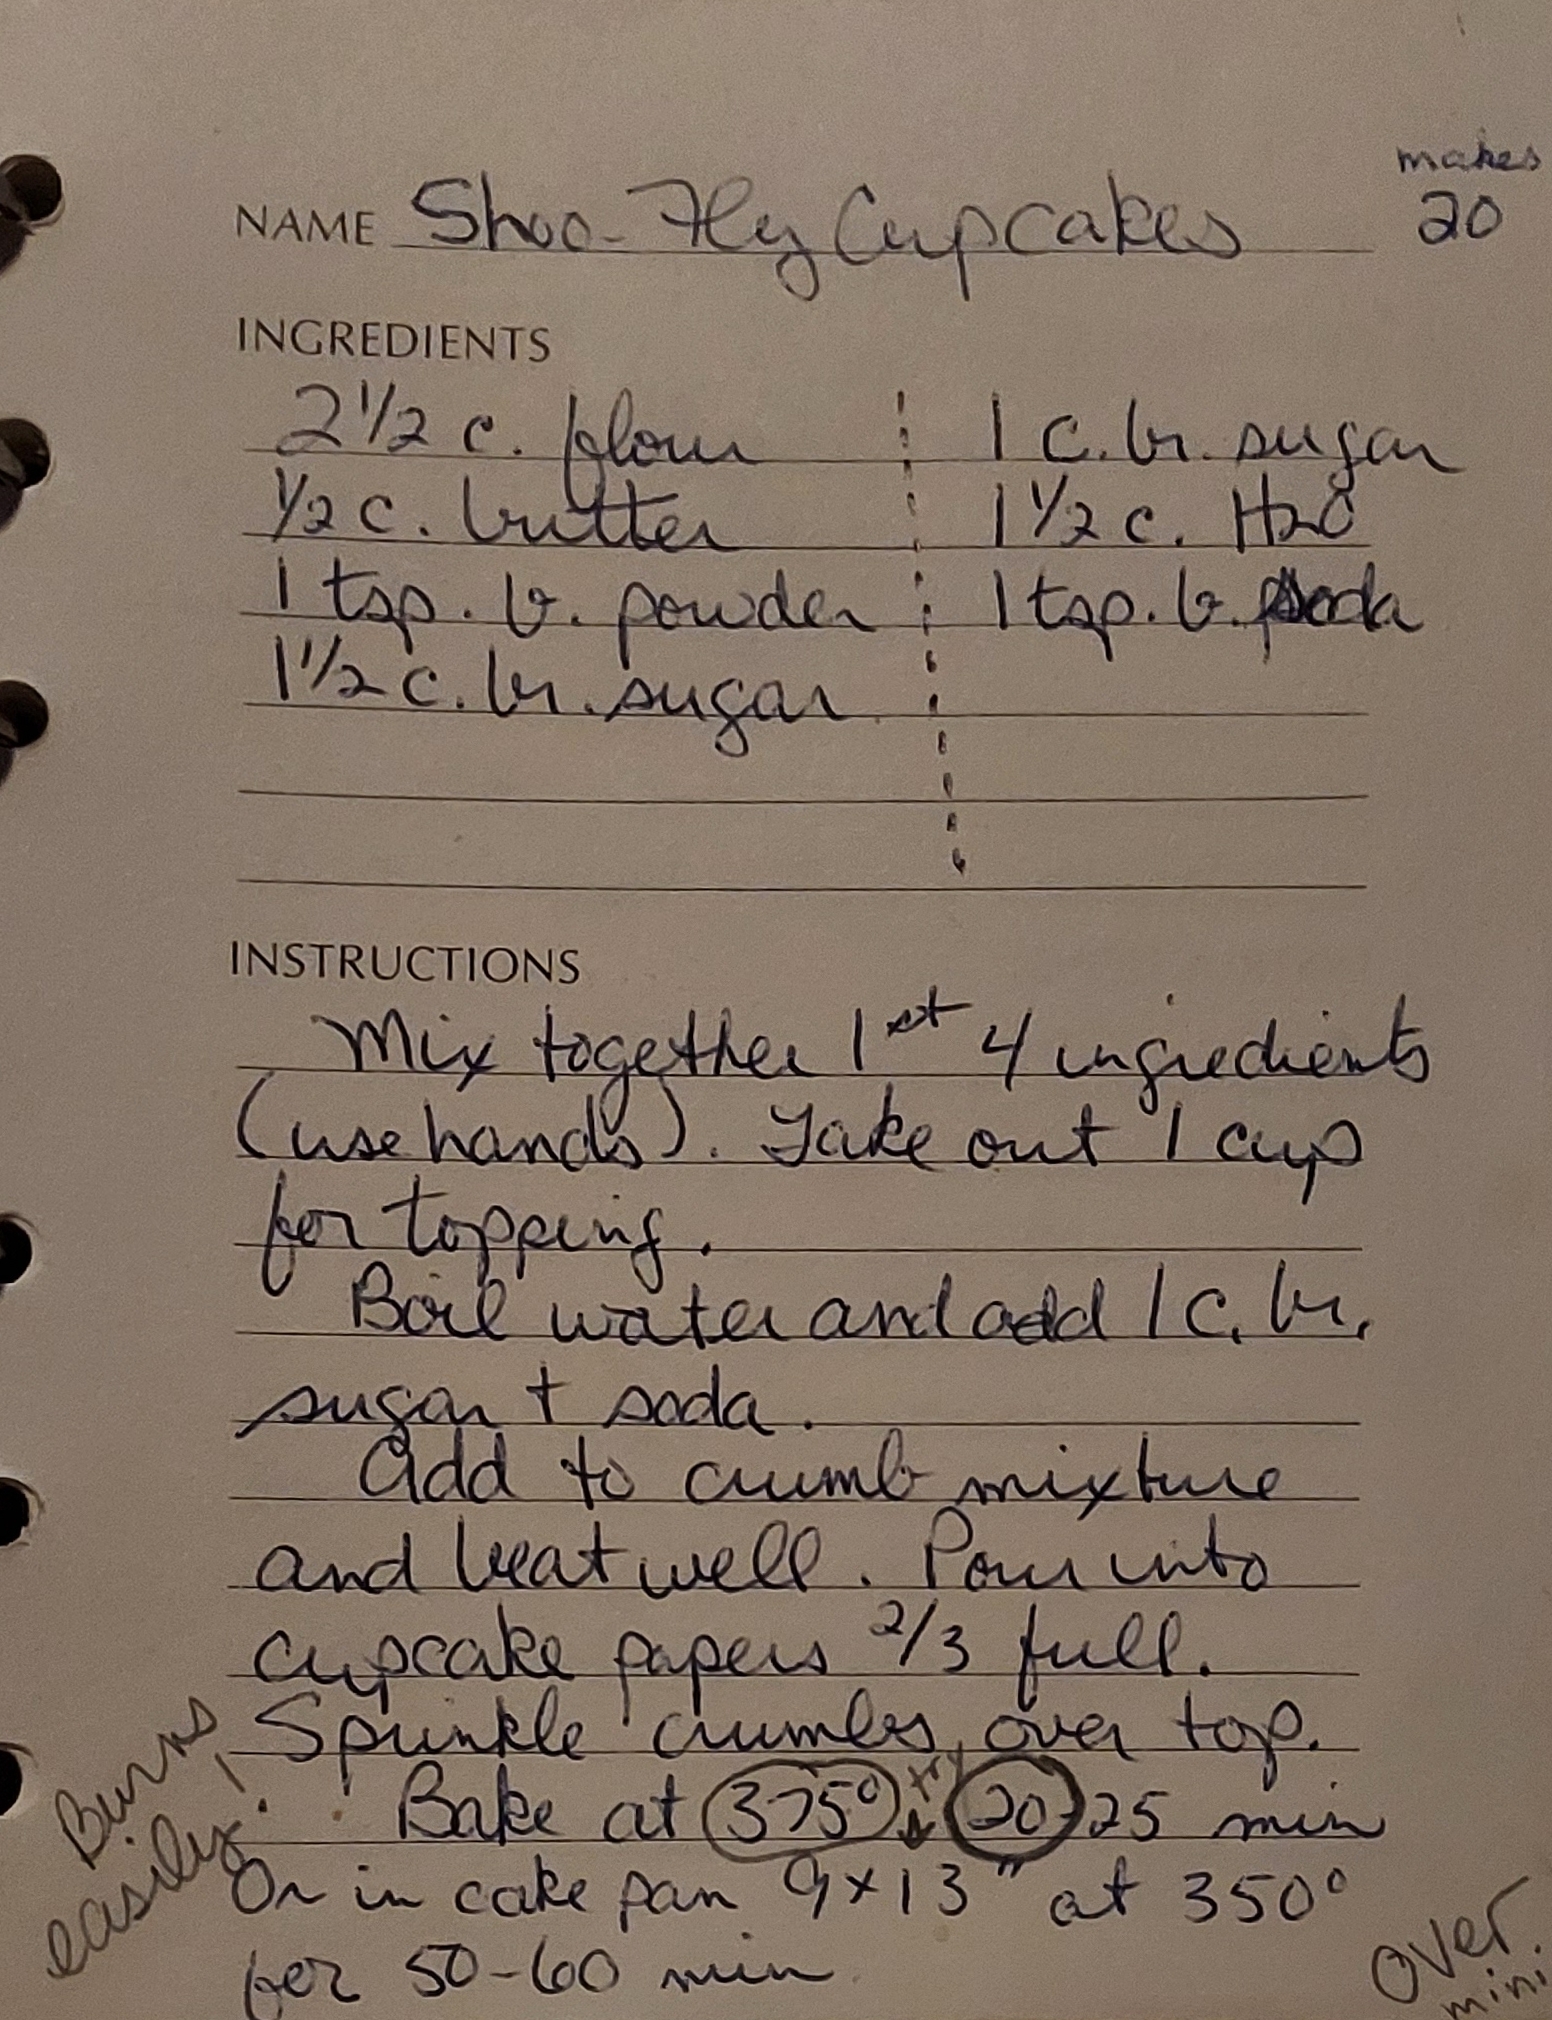 makes
20
NAME Shoo-Fly Cupcakes
INGREDIENTS
2 1/2 c. flour
1/2 c. butter
1 tsp. b. powder
1 1/2 c. br. sugar
1 c. br. sugar
1 1/2 c. H2O
1 tsp. b. soda
INSTRUCTIONS
Mix together 1st 4 ingredients
(use hands). Take out 1 cup
for topping.
Boil water and add 1 c. br.
sugar + soda.
Add to crumb mixture
and beat well. Pour into
cupcake papers 2/3 full.
Sprinkle crumbs over top.
Bake at 375° try ↓ 20-25 min
Or in cake pan 9x13" at 350°
for 50-60 min
Burns
easily!
over
mini